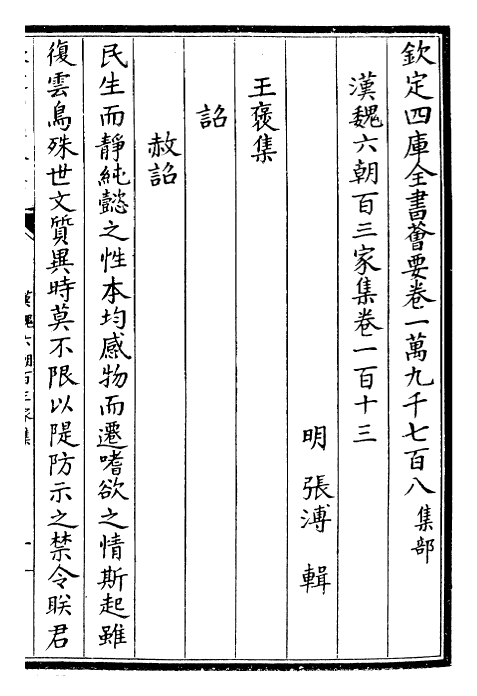 欽定四庫全書薈要卷一萬九千七百八 集部
漢魏六朝百三家集卷一百十三
明 張溥 輯
王褒集
詔
赦詔
民生而靜純懿之性本均感物而遷嗜欲之情斯起雖
復雲鳥殊世文質異時莫不限以隄防示之禁令朕君
漢魏六朝百三家集